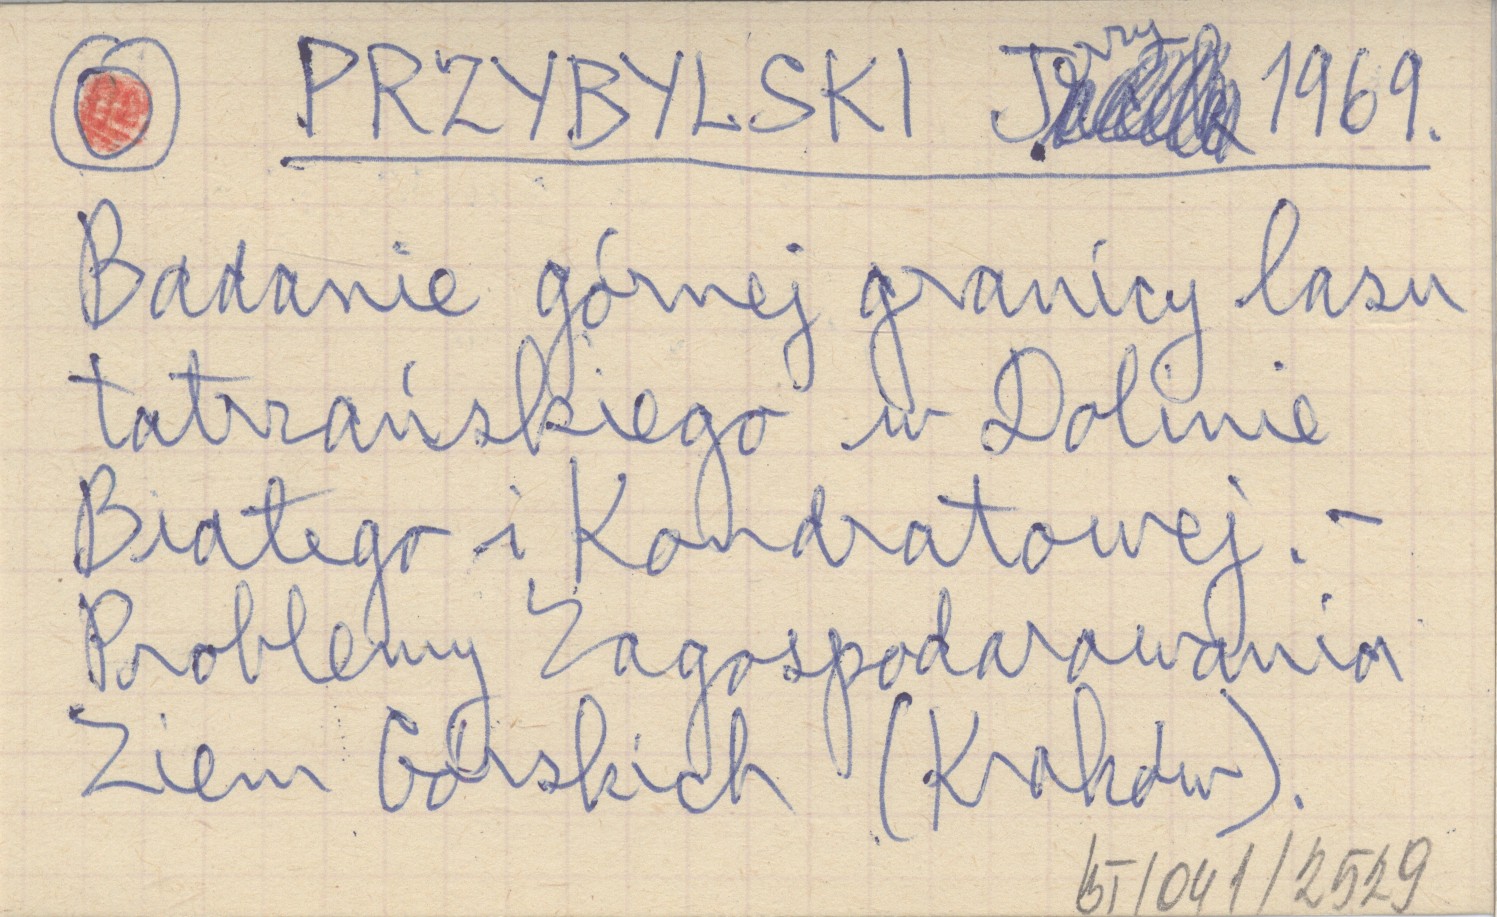 PRZYBYLSKI Jerzy 1969.
Badanie górnej granicy lasu
tatrzańskiego w Dolinie
Białego i Kondratowej. -
Problemy Zagospodarowania
Ziem Górskich (Kraków).
/041/2529